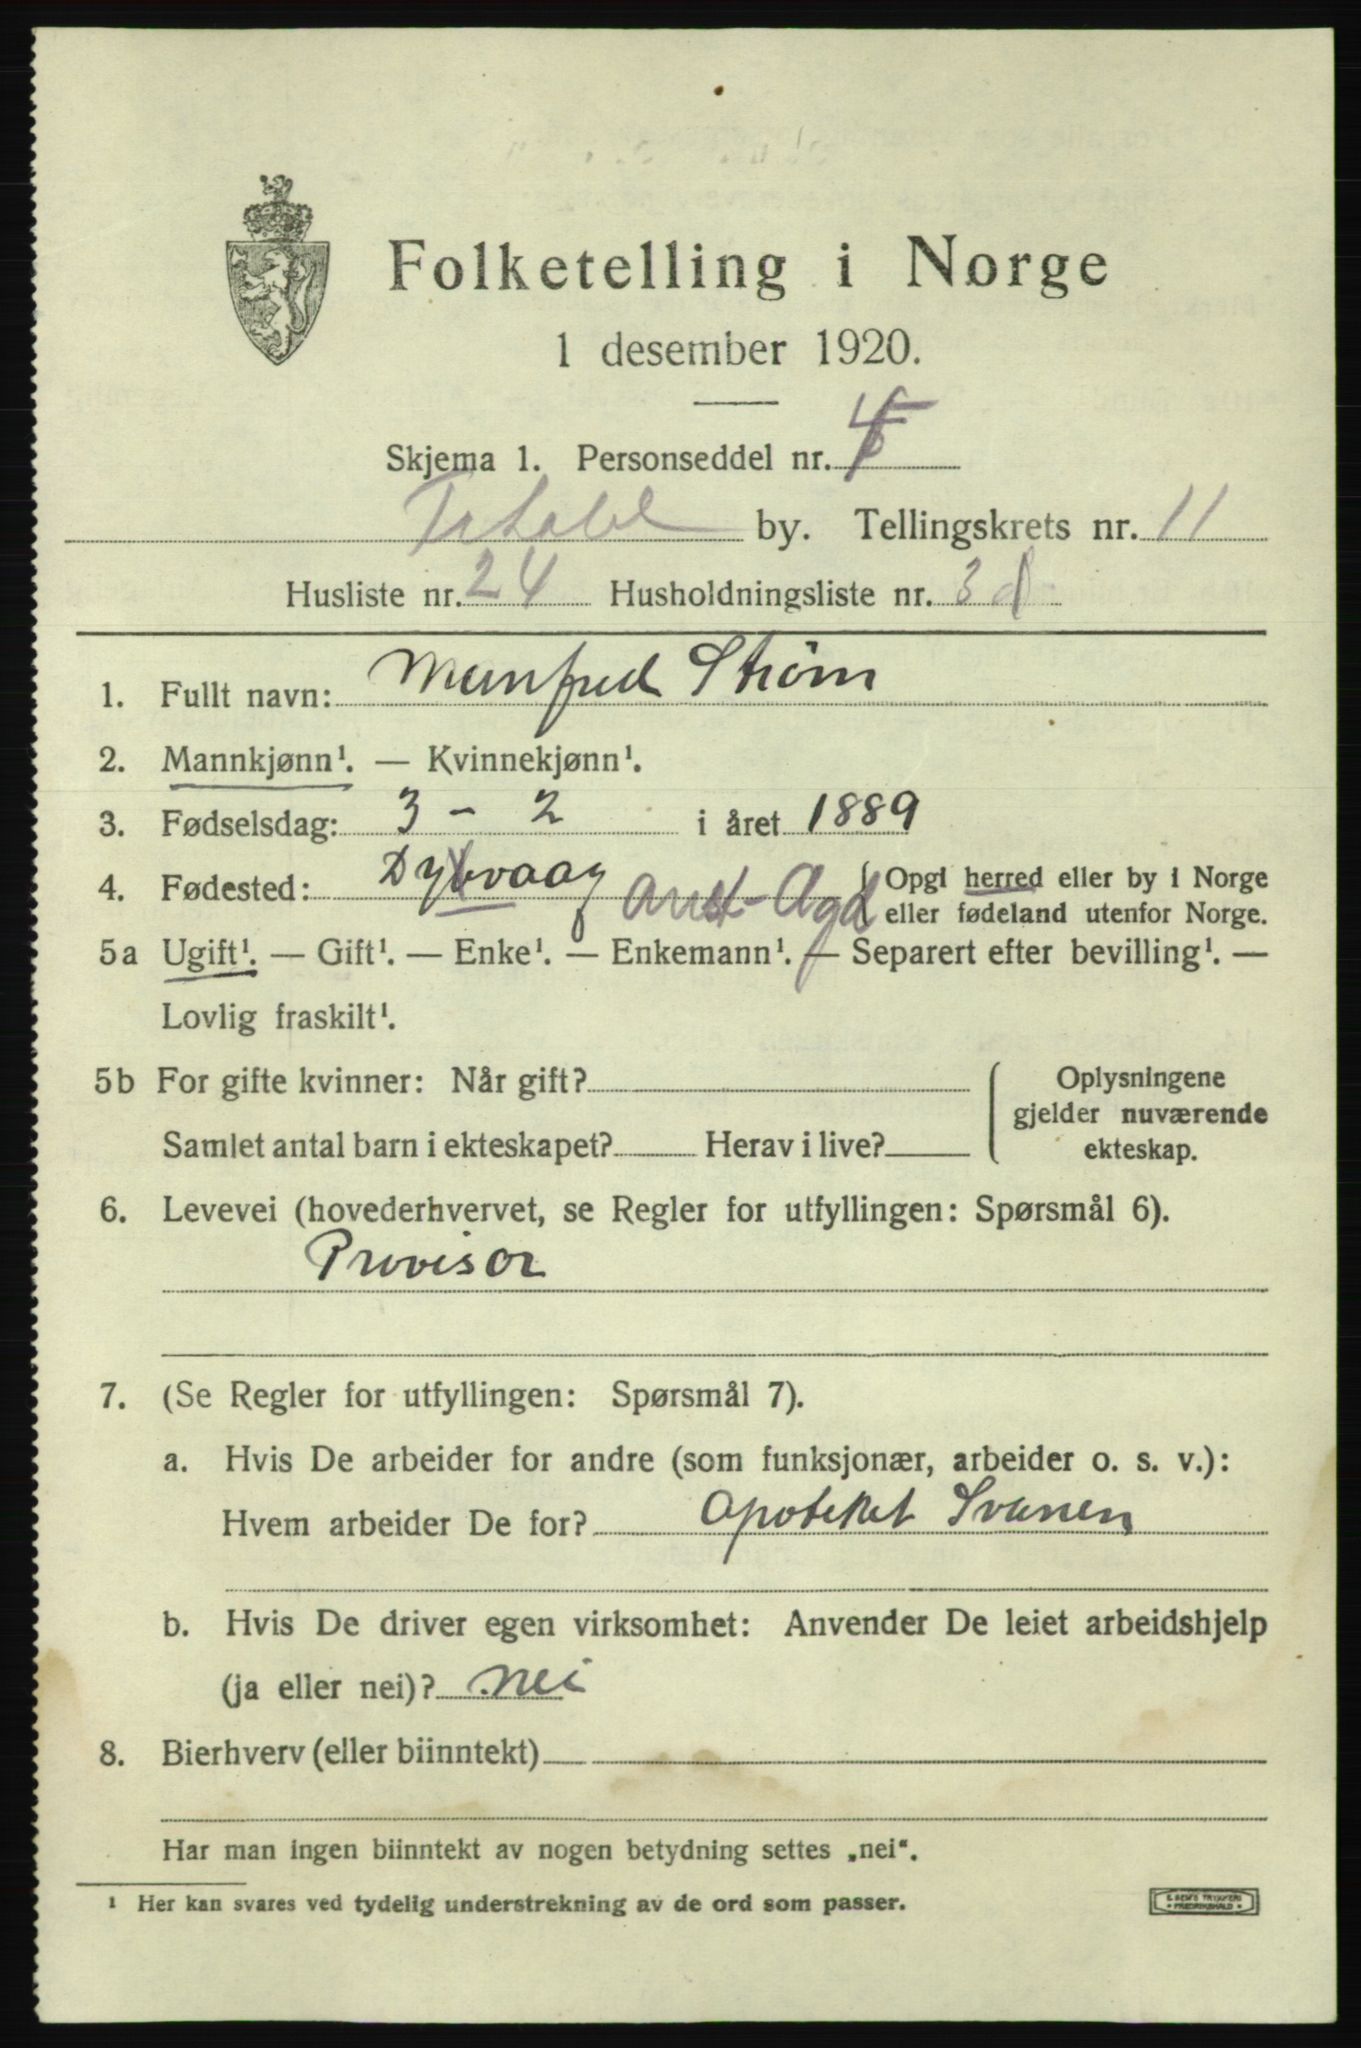 Folketelling i Norge
1 desember 1920.
Skjema 1. Personseddel nr. 4
by. Tellingskrets nr. 11
Husliste nr. 24 Husholdningsliste nr. 3
1. Fullt navn: Manfred Strøm
2. Mannkjønn¹. — Kvinnekjønn¹.
3. Fødselsdag: 3 - 2 i året 1889
4. Fødested: Dybvaag Aust-Agd { Opgi herred eller by i Norge
eller fødeland utenfor Norge.
5a Ugift¹. — Gift¹. — Enke¹. — Enkemann¹. — Separert efter bevilling¹. —
Lovlig fraskilt¹.
5b For gifte kvinner: Når gift? { Oplysningene
gjelder nuværende
Samlet antal barn i ekteskapet? Herav i live? ekteskap.
6. Levevei (hovederhvervet, se Regler for utfyllingen: Spørsmål 6).
Provisor
7. (Se Regler for utfyllingen: Spørsmål 7).
a. Hvis De arbeider for andre (som funksjonær, arbeider o. s. v.):
Hvem arbeider De for? Apoteket Svanen
b. Hvis De driver egen virksomhet: Anvender De leiet arbeidshjelp
(ja eller nei)? nei
8. Bierhverv (eller biinntekt) —
Har man ingen biinntekt av nogen betydning settes „nei“.
¹ Her kan svares ved tydelig understrekning av de ord som passer.
E. SEM'S TRYKKERI
FREDRIKSHALD